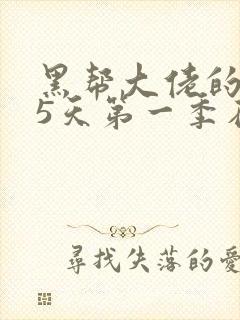 黑帮大佬的
5天第一季
尋找失落的愛